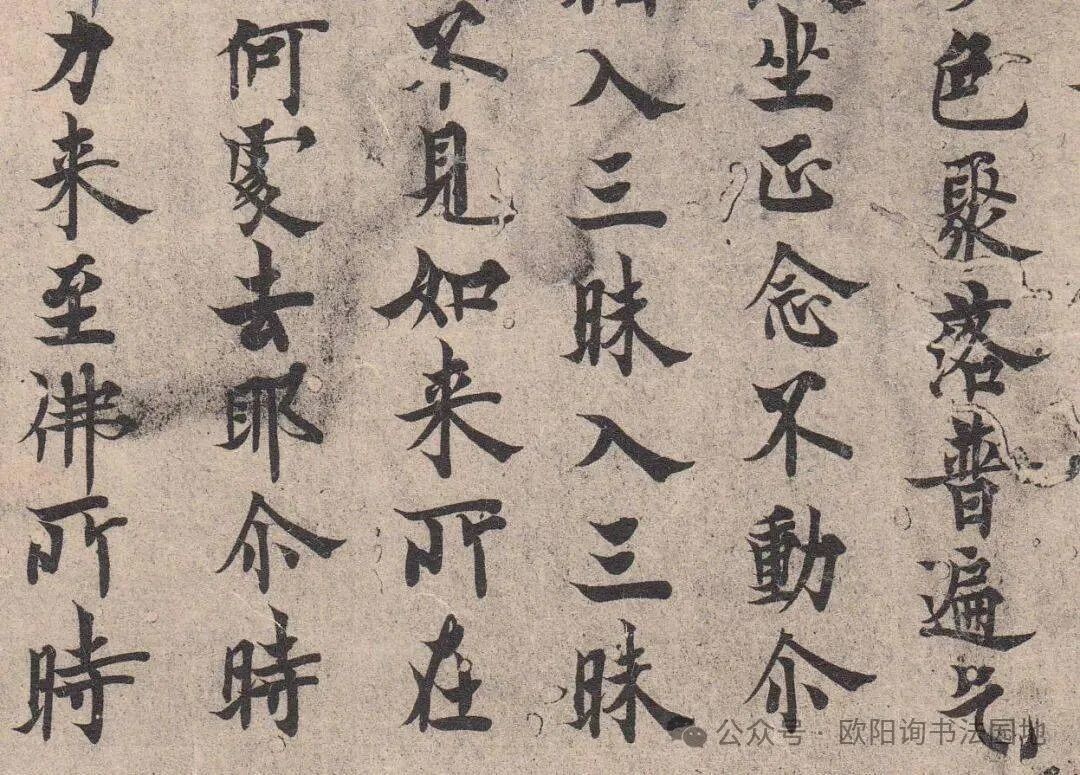 色聚落普遍乞
坐正念不動尒
入三昧入三昧
不見如来所在
何處去耶尒時
力来至佛所時
公众号·欧阳询书法园地